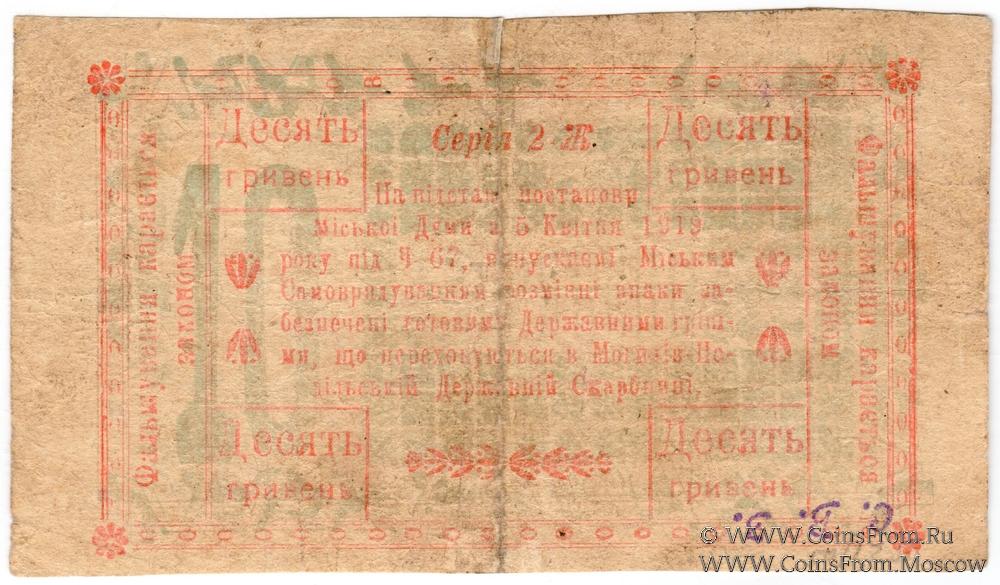 Десять
гривень
Серія 2-Ж
Десять
гривень
На підстав постанови
Міської Думи з 5 Квітня 1919
року під Ч 67, випускаємі Міським
Самоврядуванням розмінні знаки за-
безпечені готовими Державними гріш-
ми, що переховуються в Могилів-По-
дільській Державній Скарбниці.
Десять
гривень
Десять
гривень
Фальшування карається
законом
Фальшування карається
законом
© WWW.CoinsFrom.Ru
WWW.CoinsFrom.Moscow